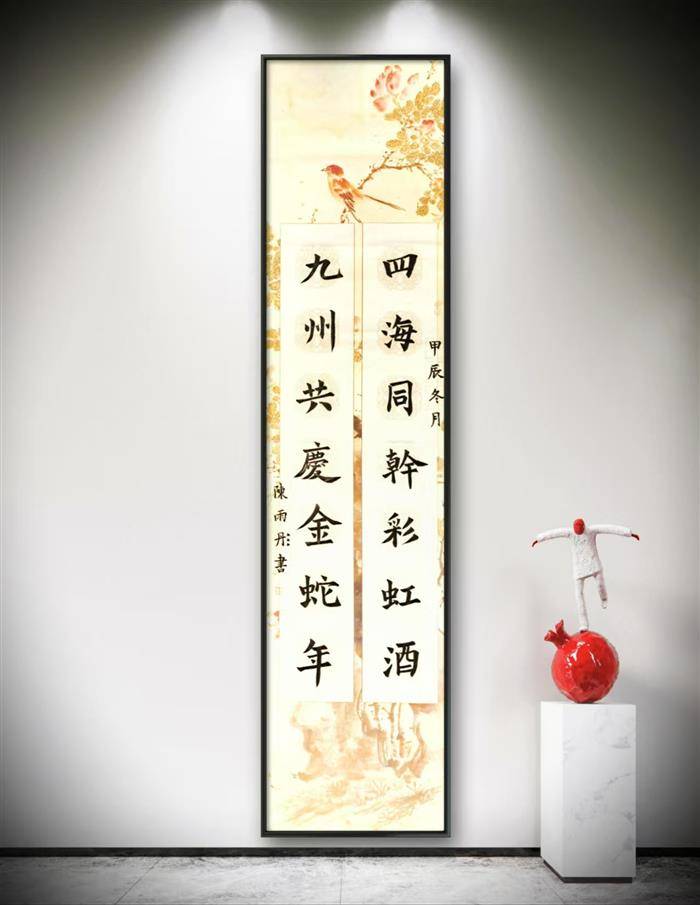 甲辰冬月
四海同幹彩虹酒
九州共慶金蛇年
陳雨彤書